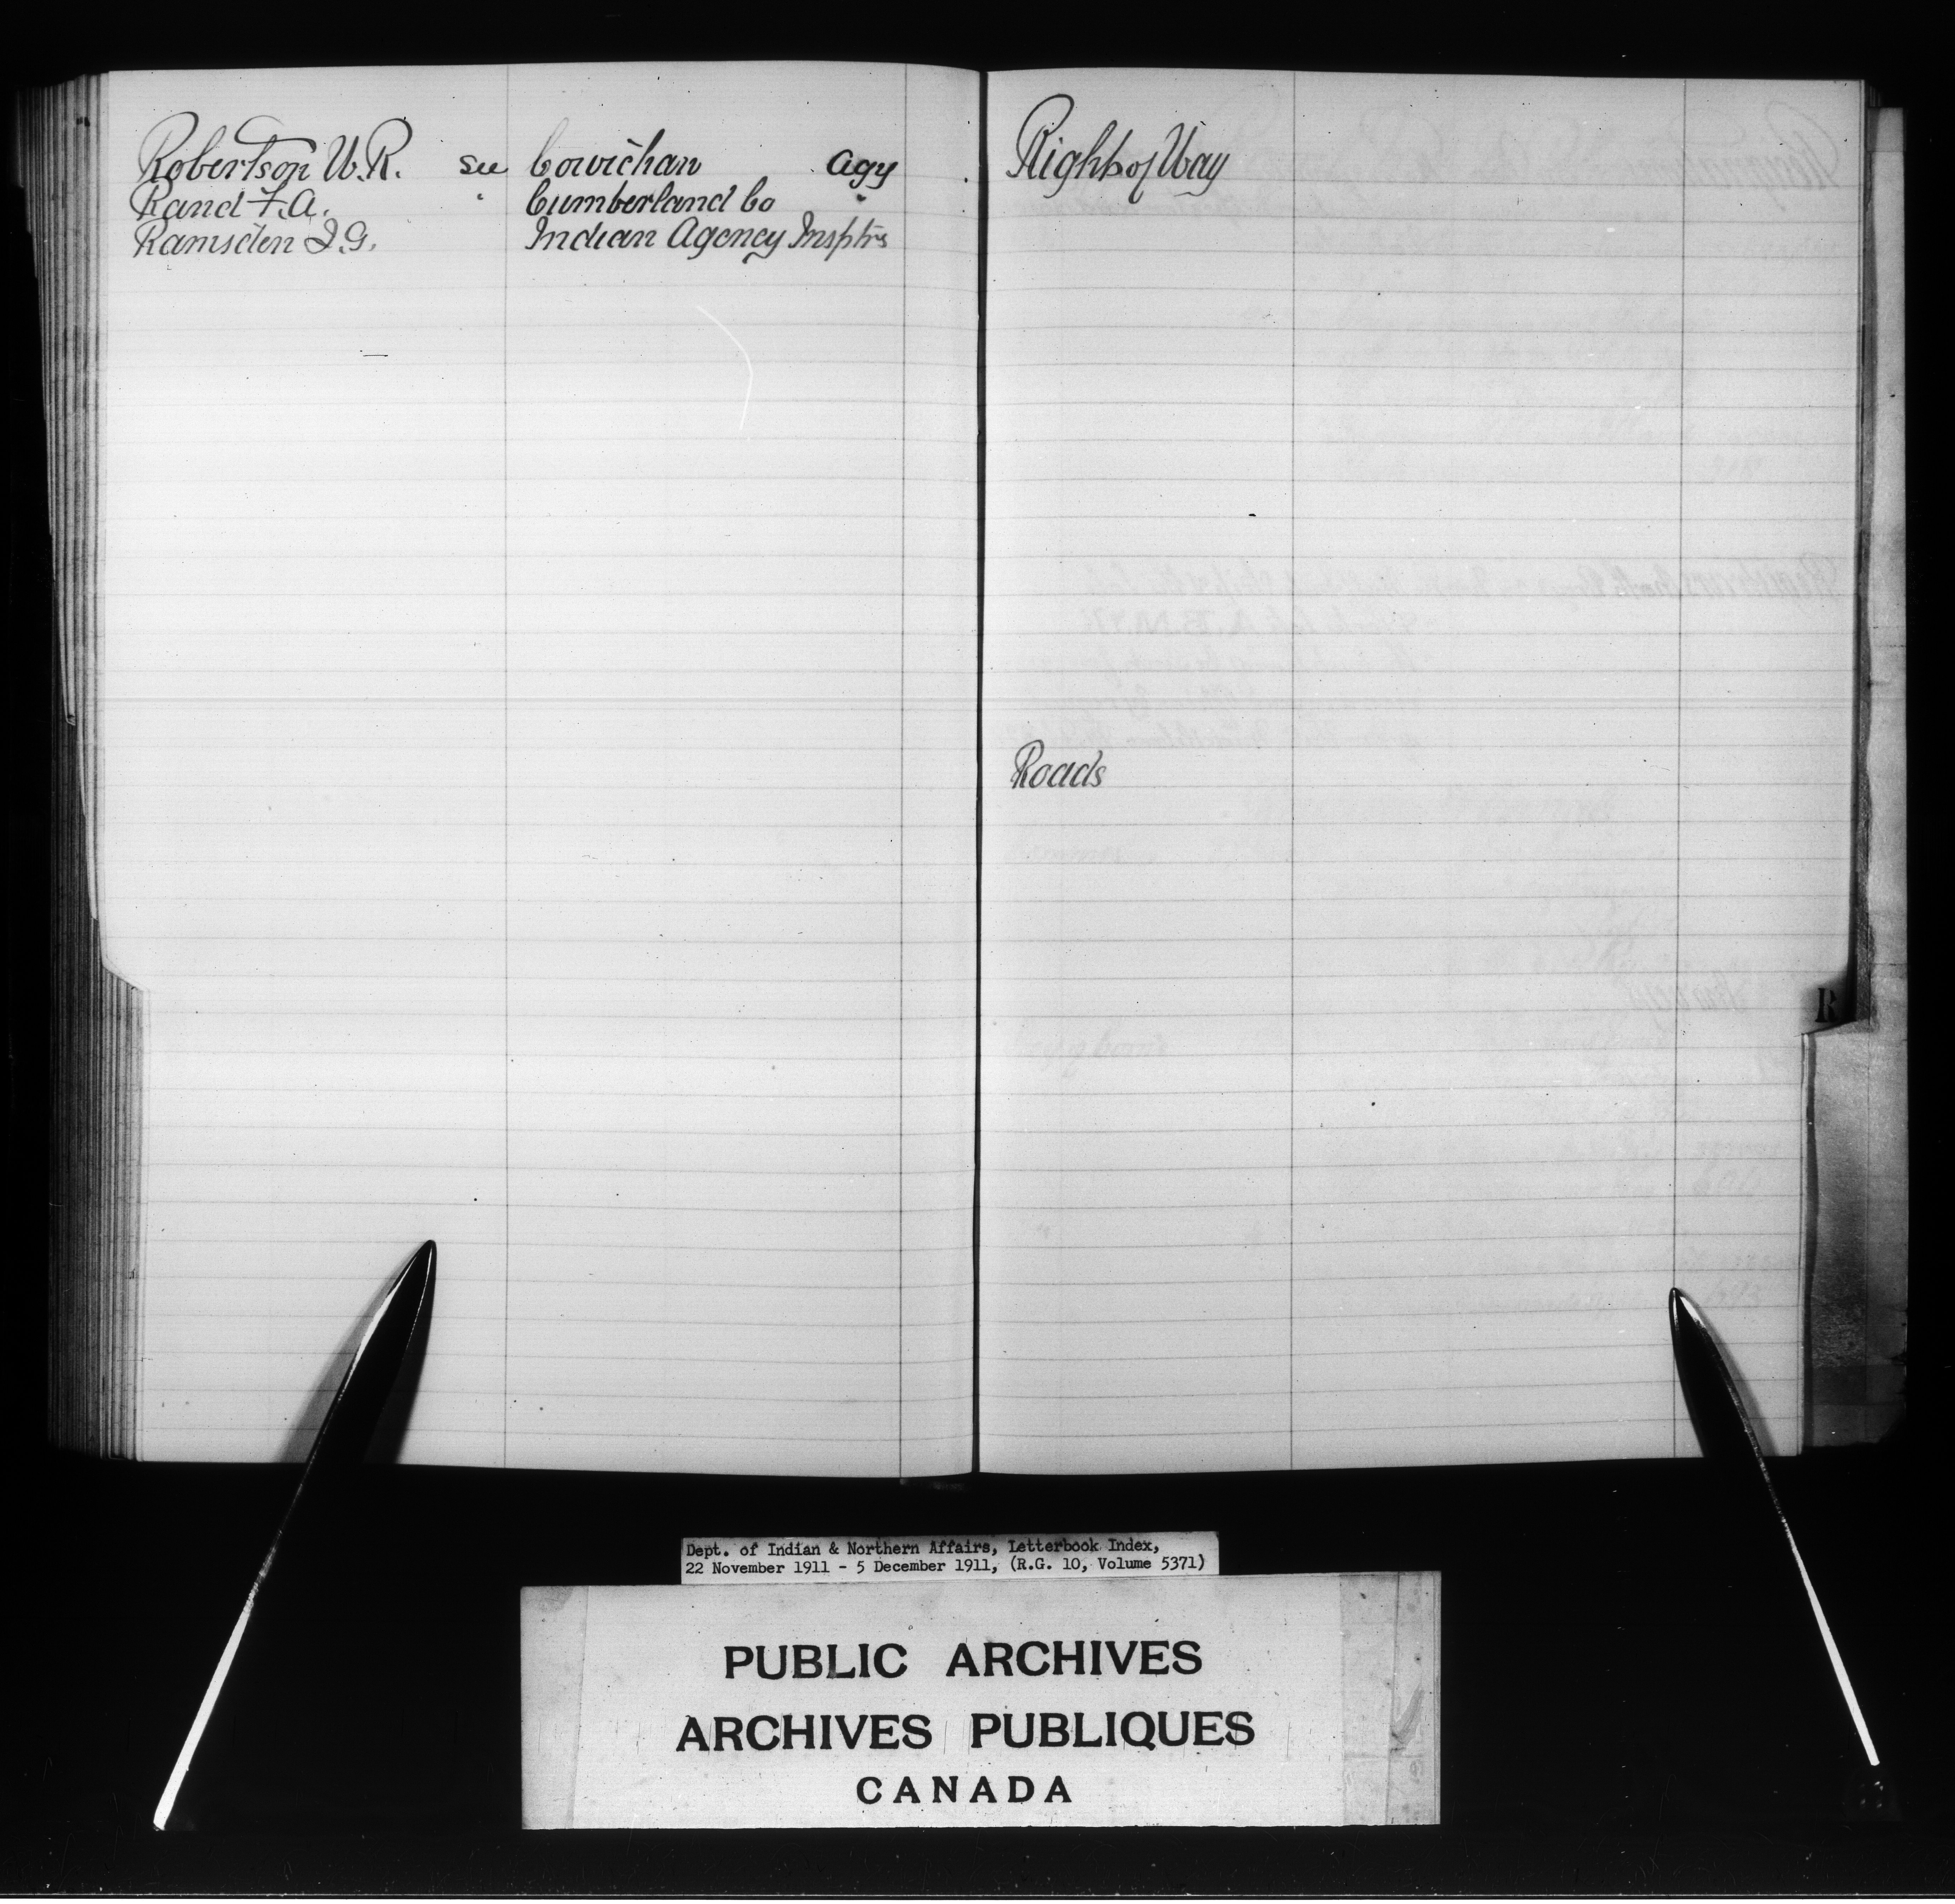 Robertson W.R. see Cowichan agy
Rand F.A. " Cumberland Co "
Ramsden J.G. Indian Agency Insptrs
Right of Way
Roads
R
Dept. of Indian & Northern Affairs, Letterbook Index,
22 November 1911 - 5 December 1911, (R.G. 10, Volume 5371)
PUBLIC ARCHIVES
ARCHIVES PUBLIQUES
CANADA